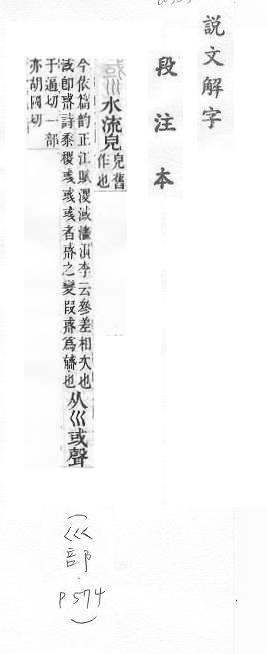 說文解字
段注本
水流皃
皃舊
作也
今依篇韵正江賦溭淢濜溳李云參差相次也
淢卽詩黍稷彧彧彧者之變叚爲也
从巛或聲
于逼切一部
亦胡國切
(巛部．P574)